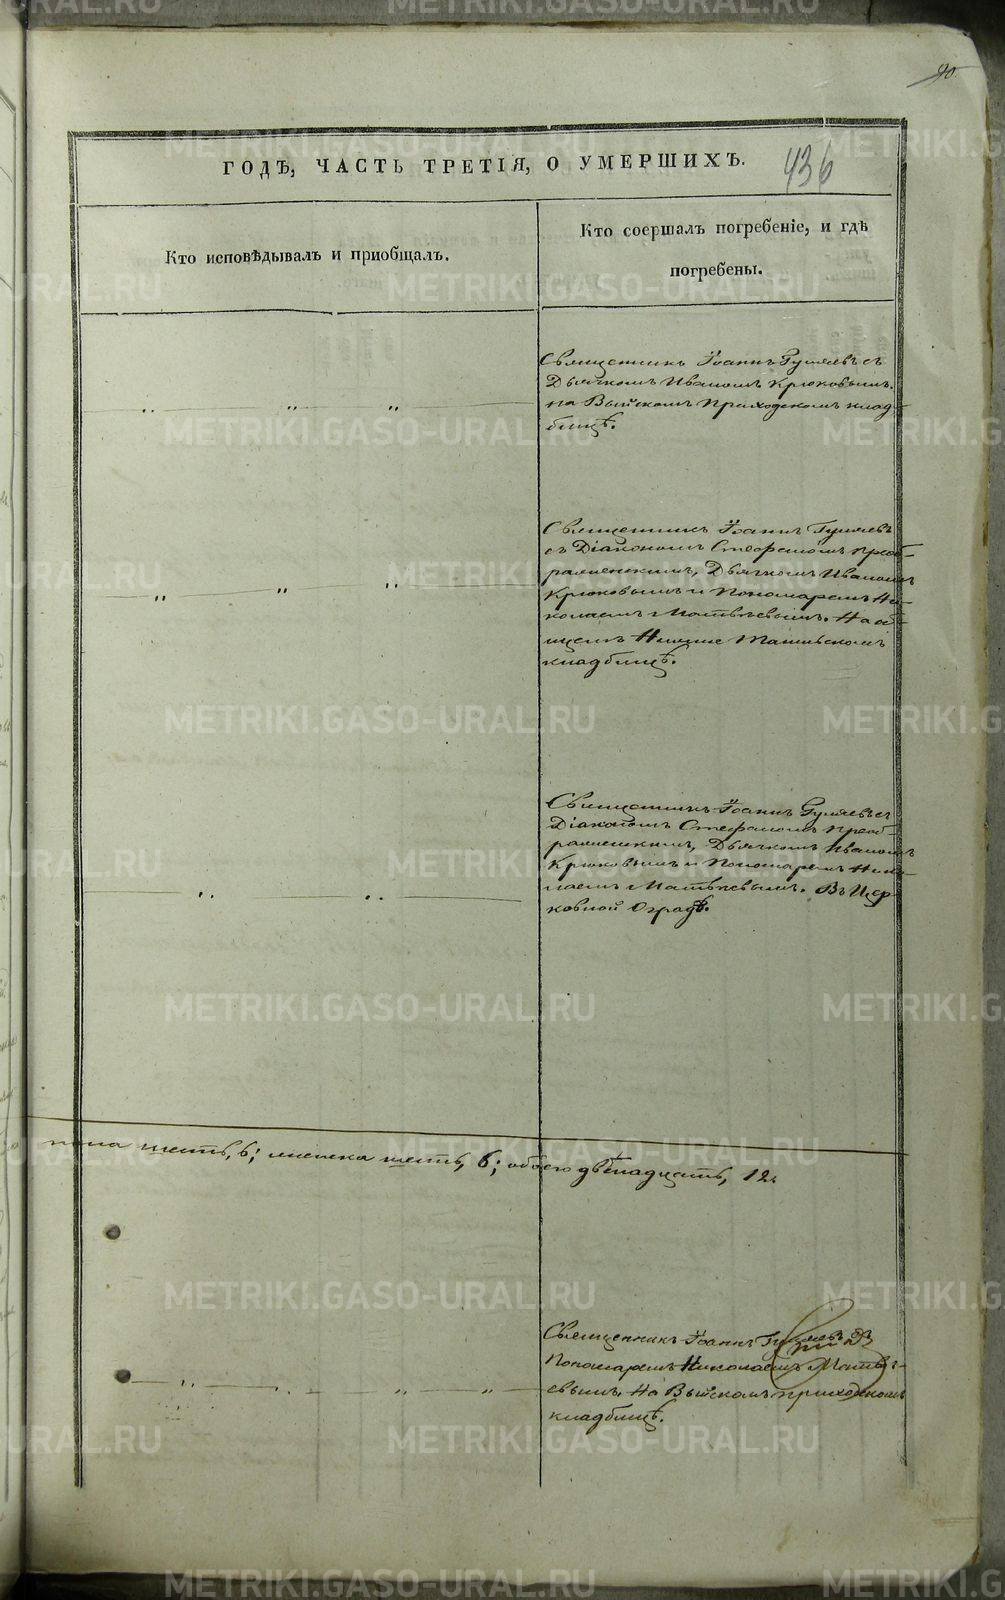 90.
436
ГОДЪ, ЧАСТЬ ТРЕТІЯ, О УМЕРШИХЪ.
Кто исповѣдывалъ и приобщалъ.
Кто соершалъ погребеніе, и гдѣ
погребены.
Священникъ Іоаннъ Гуляевъ съ
Дьячкомъ Иваномъ Крюковымъ.
на Выйскомъ приходскомъ клад-
бищѣ.
Священникъ Іоаннъ Гуляевъ
съ Діакономъ Стефаномъ Преоб-
раженскимъ, Дьячкомъ Иваномъ
Крюковымъ и Пономаремъ Ни-
колаемъ Матвѣевымъ. На об-
щемъ Нижне Тагильскомъ
кладбищѣ.
Священникъ Іоаннъ Гуляевъ съ
Діакономъ Стефаномъ Преоб-
раженскимъ, Дьячкомъ Иваномъ
Крюковымъ и Пономаремъ Нико-
лаемъ Матвѣевымъ. Въ Цер-
ковной Оградѣ.
пола шесть, 6; женска шесть, 6; обоего двѣнадцать, 12.
Священникъ Іоаннъ Гуляевъ съ
Пономаремъ Николаемъ Матвѣ-
евымъ. На Выйскомъ приходскомъ
кладбищѣ.
METRIKI.GASO-URAL.RU